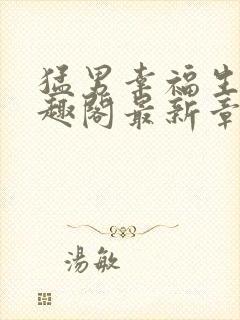 猛男幸福生
趣阁最新章
汤敏